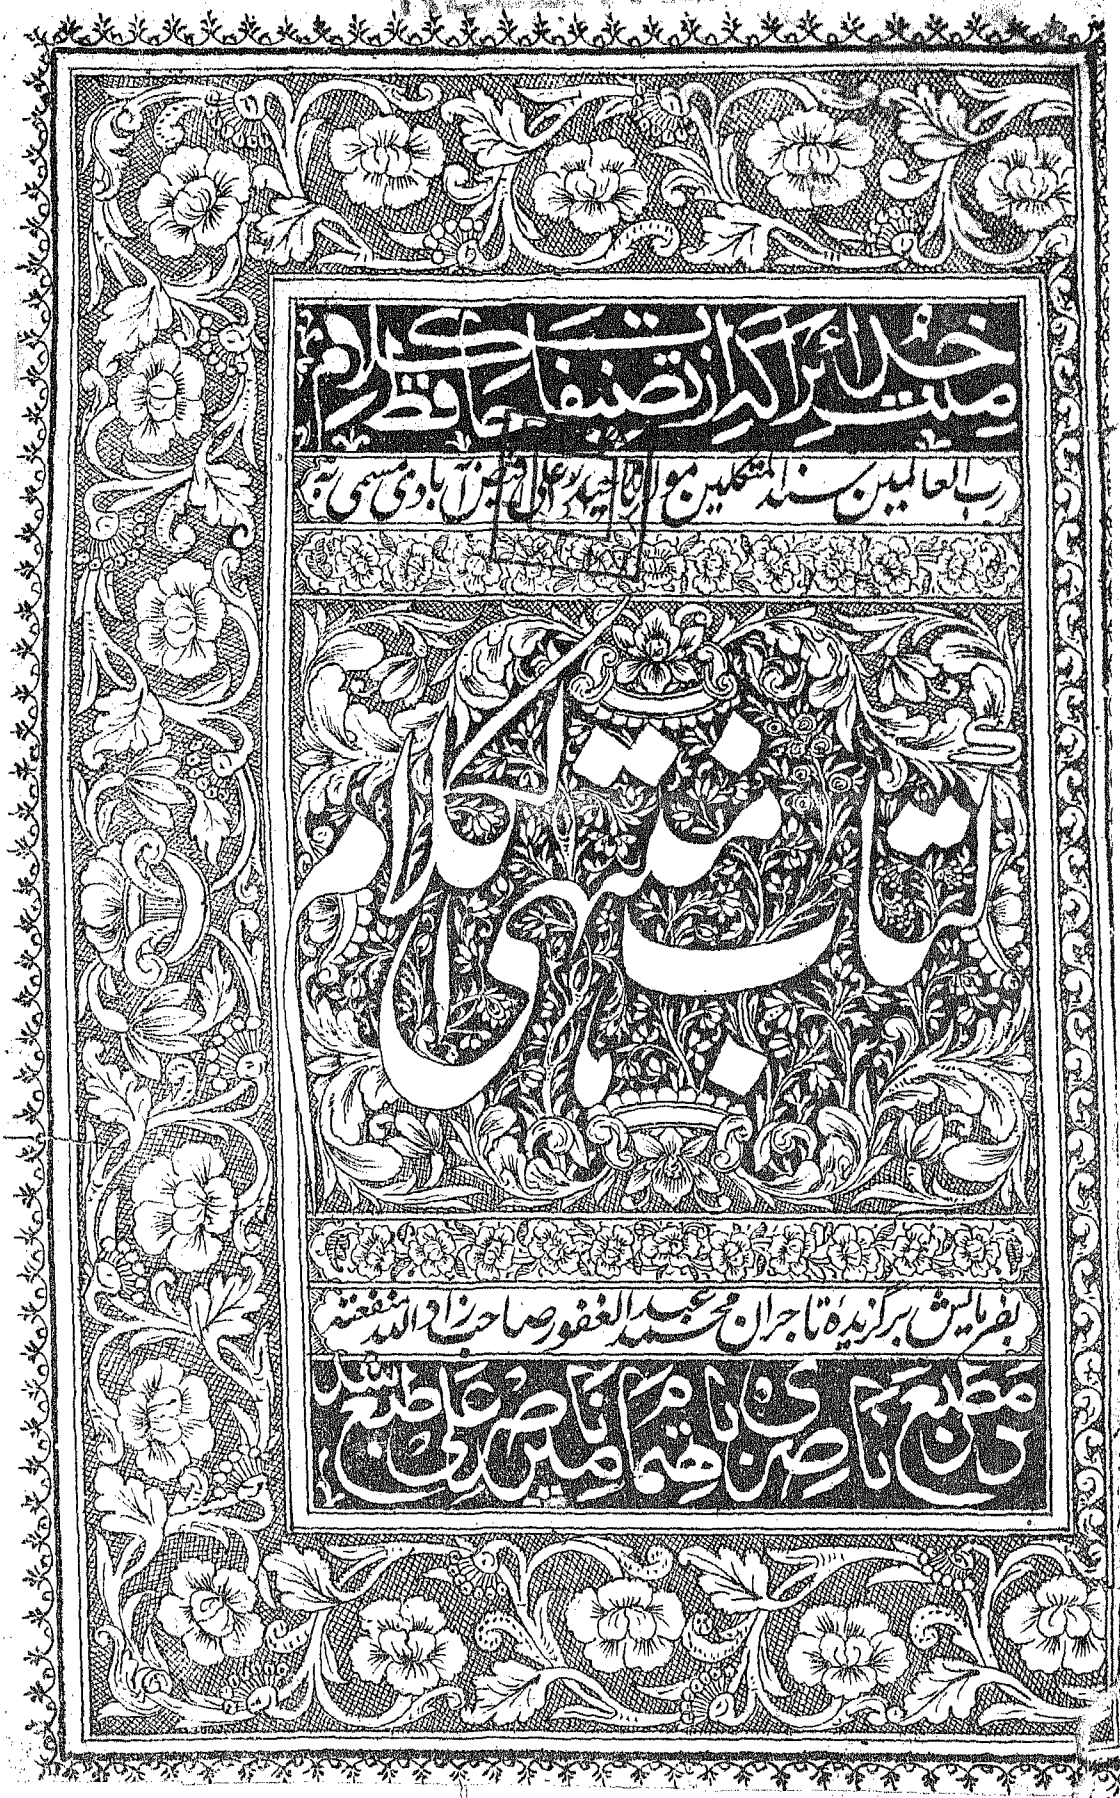 منت خدائرا که از تصنیفات حافظ کلام
رب العالمین سند المتکلمین مولانا حیدر علی فیض آبادی مسمی به
کتاب منتهی الکلام
بفرمایش برگزیدهٔ تاجران محمد عبد الغفور صاحب زاد الله منفعته
در مطبع ناصری باهتمام ناصر علی طبع